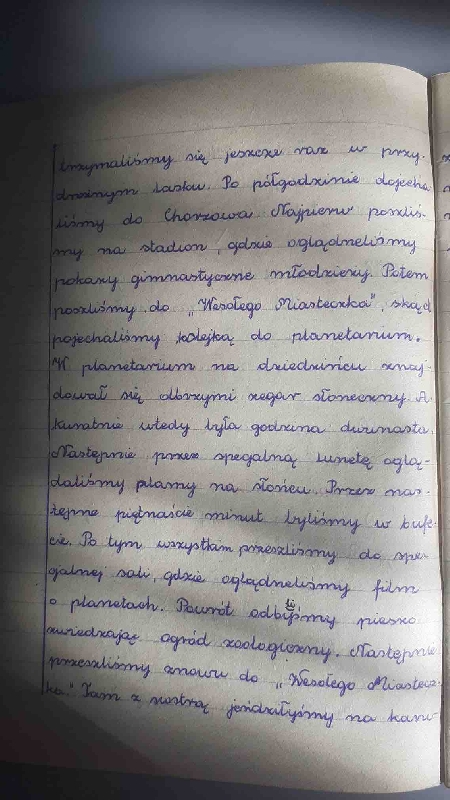 trzymaliśmy się jeszcze raz w przy-
drożnym lasku. Po półgodzinie dojecha-
liśmy do Chorzowa. Najpierw poszliś-
my na stadion, gdzie oglądneliśmy
pokazy gimnastyczne młodzieży. Potem
poszliśmy do „Wesołego Miasteczka", skąd
pojechaliśmy kolejką do planetarium.
W planetarium na dziedzińcu znaj-
dował się olbrzymi zegar słoneczny. A
kuratnie wtedy była godzina dwunasta.
Następnie przez specjalną lunetę oglą-
daliśmy plamy na słońcu. Przez nas-
tępne piętnaście minut byliśmy w bufe-
cie. Po tym wszystkim przeszliśmy do spe-
cjalnej sali, gdzie oglądneliśmy film
o planetach. Powrót odbyliśmy pieszo
zwiedzając ogród zoologiczny. Następnie
przeszliśmy znowu do „Wesołego Miastecz-
ka." Tam z siostrą jeździłyśmy na karu-